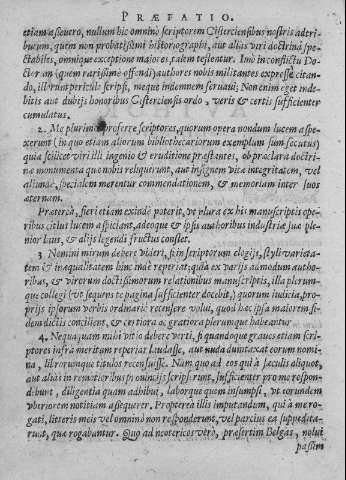 PRÆFATIO.
etiam assevero, nullum hic omninò scriptorem Cisterciensibus nostris adscribi
quem non probatissimi historiographi, aut aliàs veri doctrinâ spectabiles,
omnique exceptione maiores, talem testentur. Imò in conflictu Doctorum
(quem rarissimè offendi) authores nobis militantes expressè citando,
illorum periculo scripsi, meque indemnem servavi; Non enim eget indebitis
aut dubijs honoribus Cisterciensis ordo, veris & certis sufficienter
cumulatus.
2. Me plurimos proferre scriptores, quorum opera nondum lucem aspexerunt
(in quo etiam aliorum bibliothecariorum exemplum sum secutus)
quia scilicet viri illi ingenio & eruditione præstantes, ob præclara doctrina
monumenta quæ nobis reliquerunt, aut insignem vitæ integritatem, vel
aliunde, specialem merentur commendationem, & memoriam inter suos
æternam.
Præterea, fieri etiam exinde poterit, ve plura ex his manuscriptis operibus
citius lucem aspiciant, adeoque & ipsis authoribus industriæ suæ plenior
laus, & alijs legendi fructus constet.
3 Nemini mirum debere videri, si in scriptorum elogijs, styli varietatem
& inæqualitatem hinc inde reperiat; quia ex varijs admodum authoribus,
& virorum doctissimorum relationibus manuscriptis, illa plerumque
collegi (vt sequens te pagina sufficienter docebit,) quorum iudicia, proprijs
ipsorum verbis ordinariè recensere volui, quod hæc ipsa maiorem fidem
dictis concilient, & certiora ac gratiora plerumque habeantur
4. Nequaquam mihi vitio debere verti, si quandoque graves etiam scriptores
infra meritum reperiar laudasse, aut nuda dumtaxat eorum nomina,
librorumque titulos recensuisse. Nam quo ad eos qui à sæculis aliquot,
aut aliàs in remotioribus provincijs scripserunt, sufficienter pro me respondebunt,
diligentia quam adhibui, laborque quem insumpsi, vt eorundem
vberiorem notitiam assequerer. Propterea illis imputandum, qui à me rogati,
litteris meis vel omninò non responderunt, vel parcius ea suppeditarunt,
quæ rogabantur. Quo ad neotericos verò, præsertim Belgas, nolui
passim